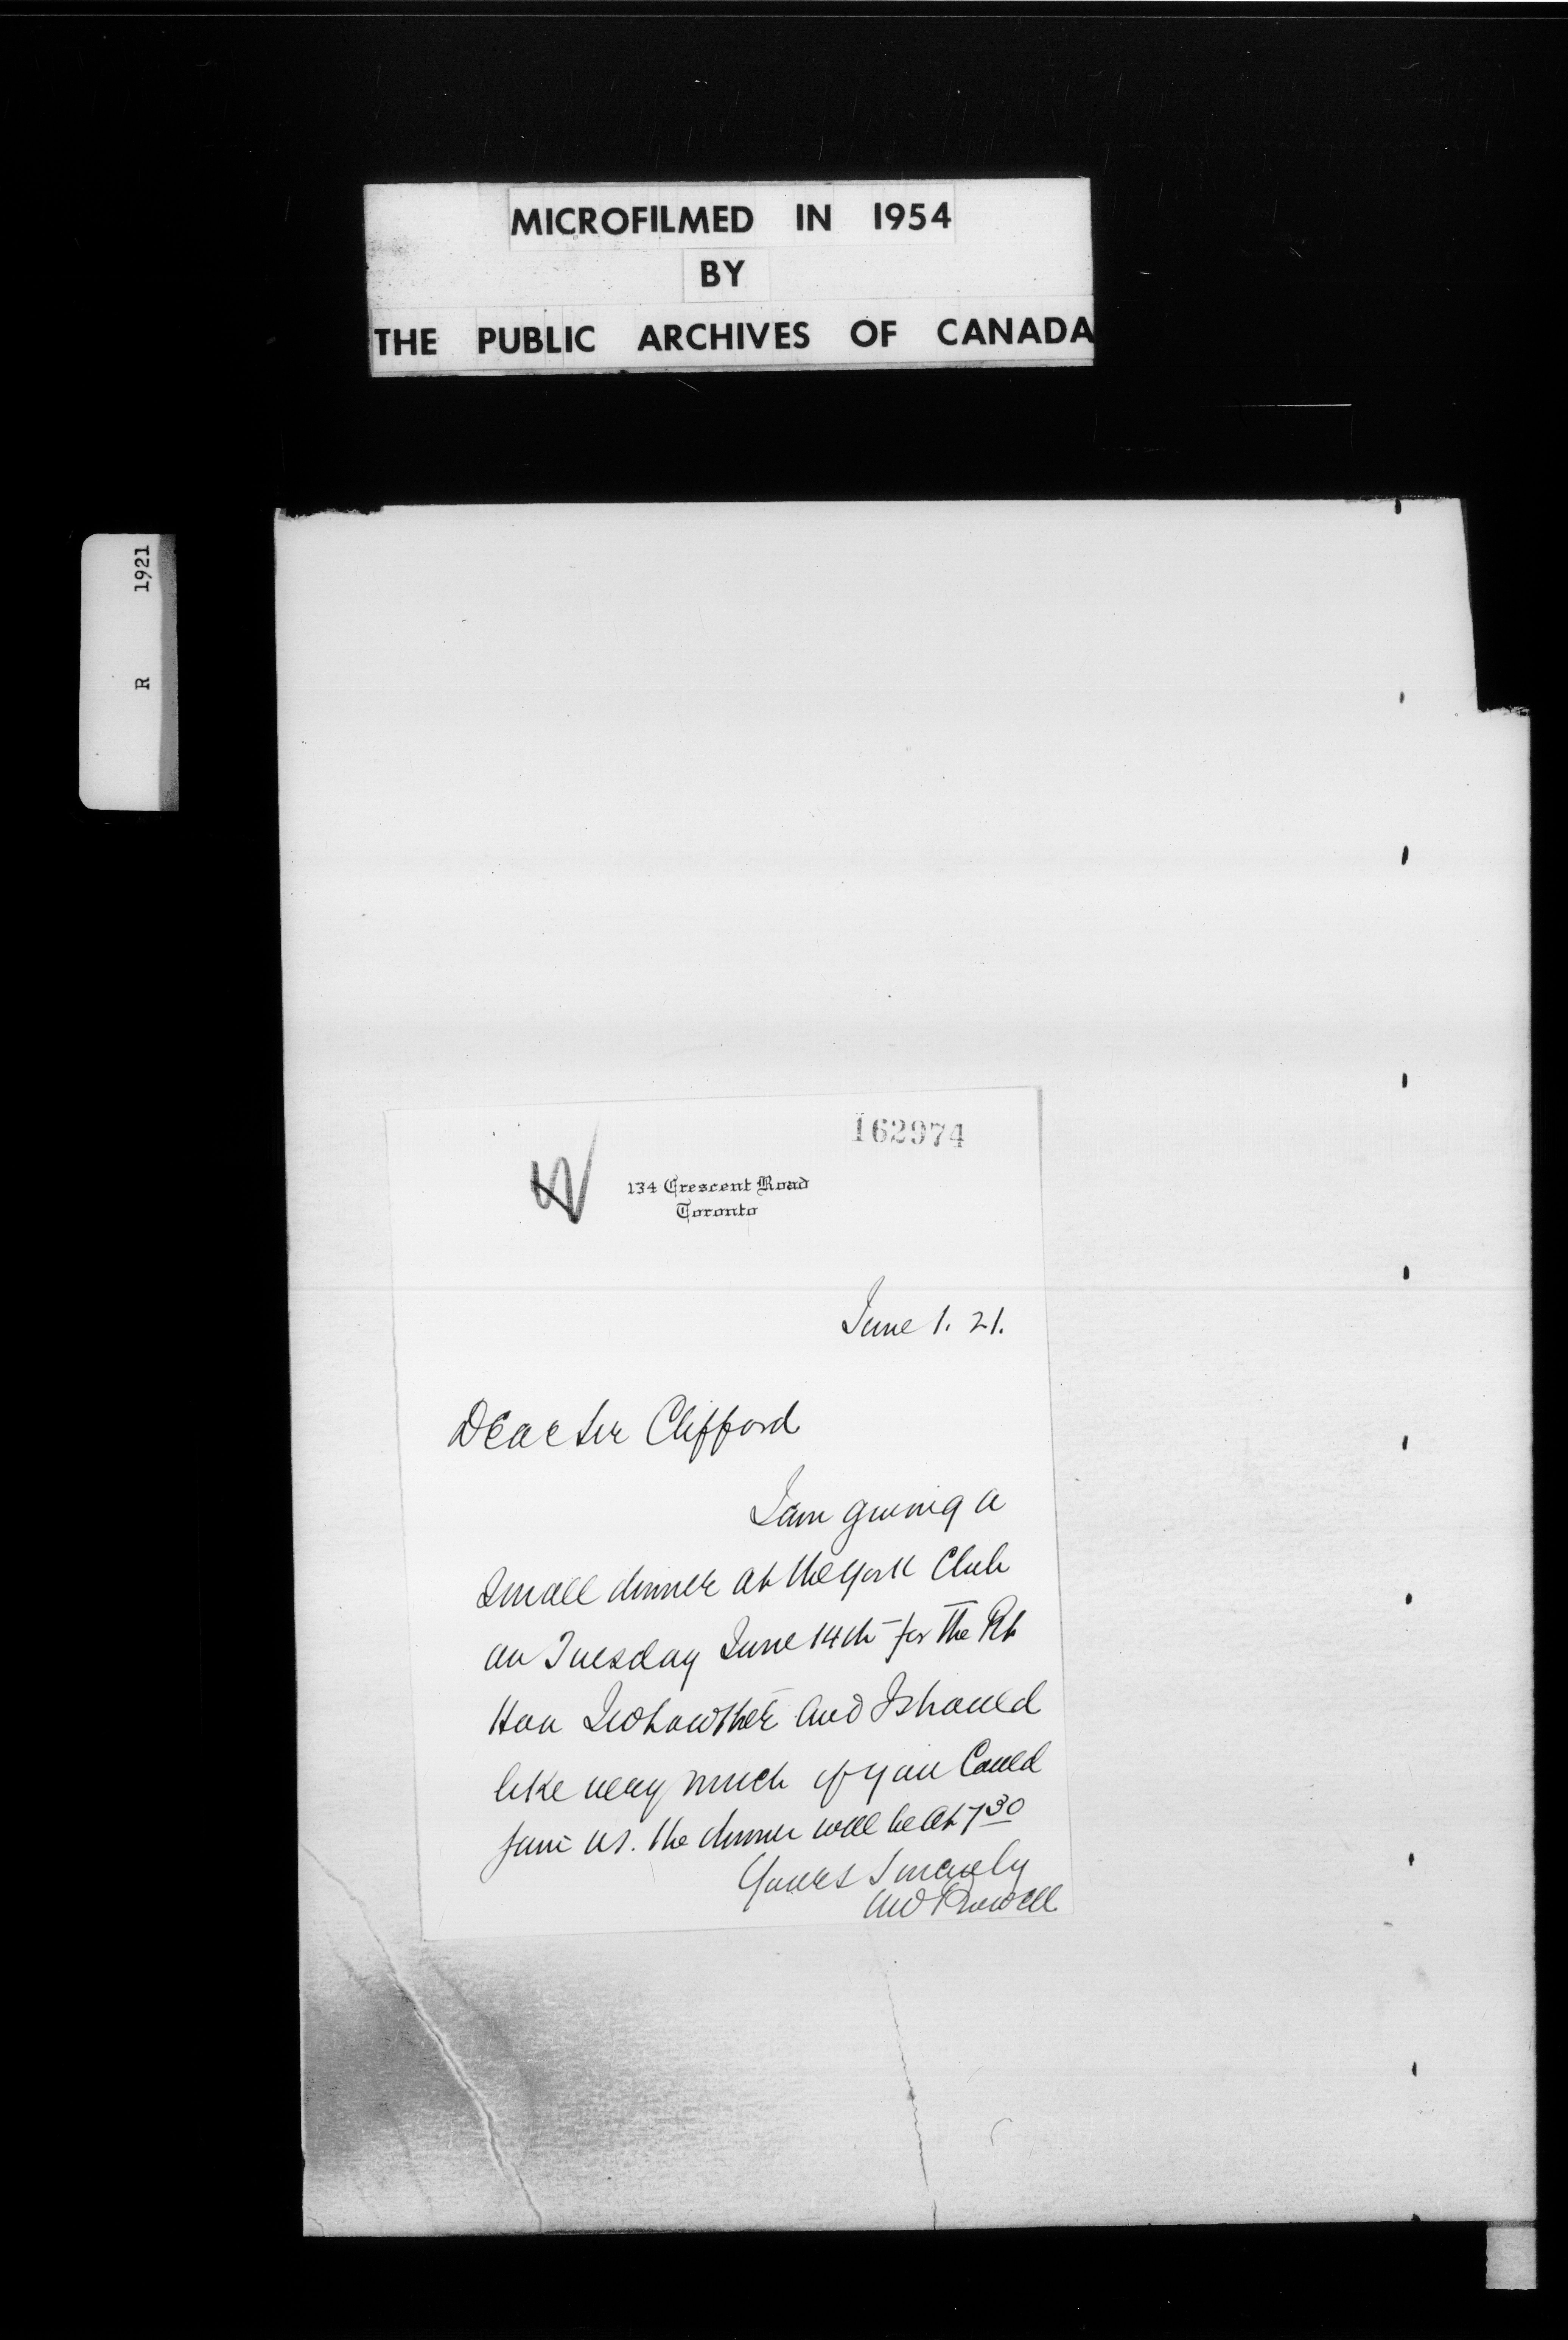 MICROFILMED IN 1954
BY
THE PUBLIC ARCHIVES OF CANADA
R 1921
162974
134 Crescent Road
Toronto
June 1. 21.
Dear Sir Clifford
I am giving a
small dinner at the York Club
on Tuesday June 14th for The Rt
Hon Lowther and I should
like very much if you could
join us. The dinner will be at 7 30
Yours Sincerely
Rowell